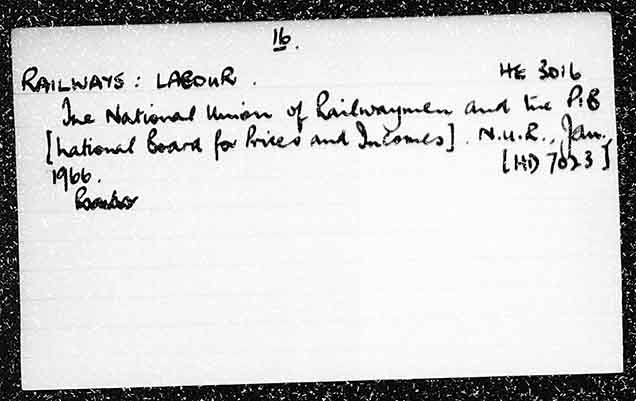 16.
RAILWAYS: LABOUR. HE 3016
The National Union of Railwaymen and the P.I.B
[National Board for Prices and Incomes]. N.U.R., Jan.
1966. [HD 7023]